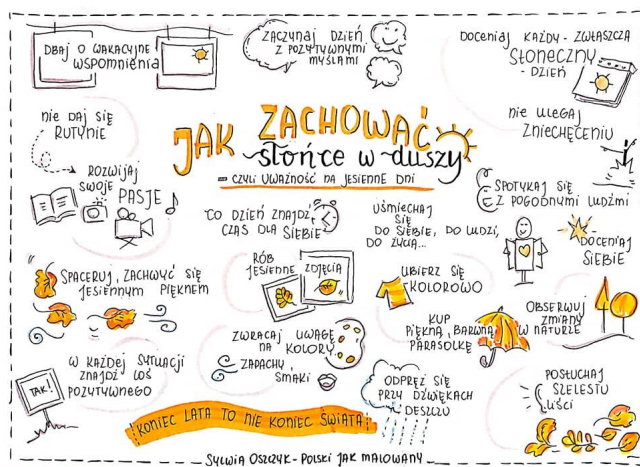 DBAJ O WAKACYJNE
WSPOMNIENIA
ZACZYNAJ DZIEŃ
Z POZYTYWNYMI
MYŚLAMI
DOCENIAJ KAŻDY - ZWŁASZCZA
SŁONECZNY
- DZIEŃ
NIE DAJ SIĘ
RUTYNIE
JAK ZACHOWAĆ
słońce w duszy
- CZYLI UWAŻNOŚĆ NA JESIENNE DNI
NIE ULEGAJ
ZNIECHĘCENIU
ROZWIJAJ
SWOJE
PASJE
CO DZIEŃ ZNAJDŹ
CZAS DLA
SIEBIE
UŚMIECHAJ
SIĘ
DO SIEBIE, DO LUDZI,
DO ŻYCIA...
SPOTYKAJ SIĘ
Z POGODNYMI LUDŹMI
DOCENIAJ
SIEBIE
SPACERUJ, ZACHWYĆ SIĘ
JESIENNYM PIĘKNEM
RÓB
JESIENNE
ZDJĘCIA
UBIERZ SIĘ
KOLOROWO
OBSERWUJ
ZMIANY
W NATURZE
KUP
PIĘKNĄ, BARWNĄ
PARASOLKĘ
ZWRACAJ UWAGĘ
NA KOLORY,
ZAPACHY,
SMAKI
W KAŻDEJ SYTUACJI
ZNAJDŹ COŚ
POZYTYWNEGO
TAK!
ODPRĘŻ SIĘ
PRZY DŹWIĘKACH
DESZCZU
POSŁUCHAJ
SZELESTU
LIŚCI
KONIEC LATA TO NIE KONIEC ŚWIATA
SYLWIA OSZCZYK - POLSKI JAK MALOWANY